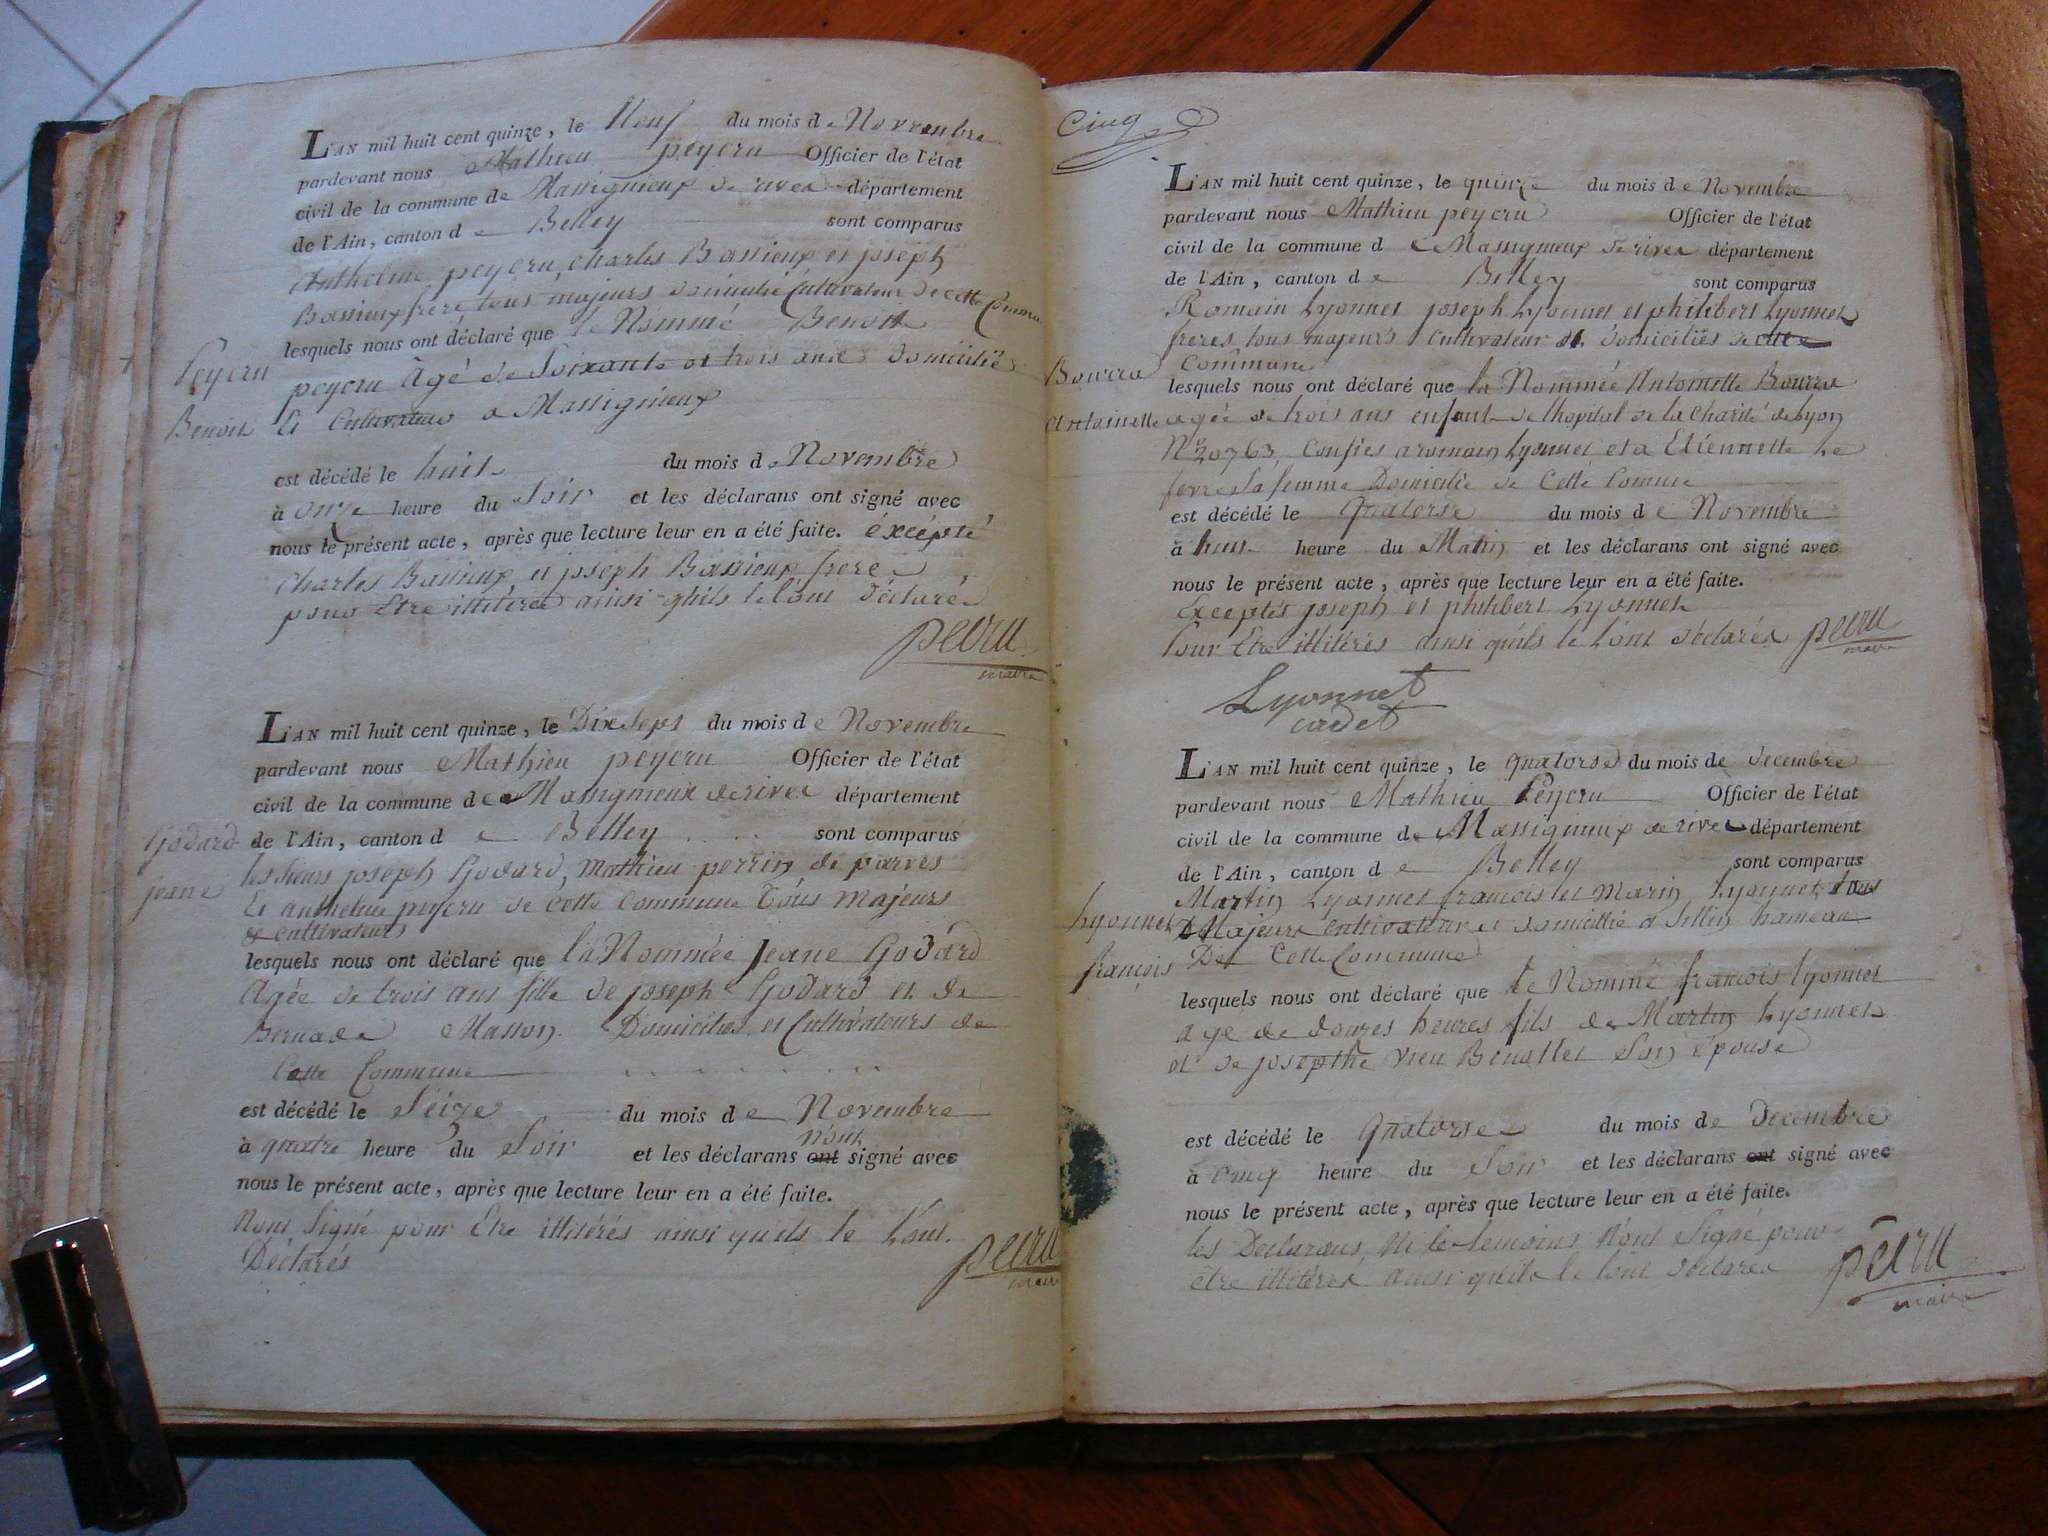 L'AN mil huit cent quinze, le Neuf du mois de Novembre
pardevant nous Mathieu peycru Officier de l'état
civil de la commune de Massignieux de rives département
de l'Ain, canton de Belley sont comparus
Anthelme peycru, charles Bassieux et joseph
Bassieux frere, tous majeurs domicilié Cultivateur de cette Commune
lesquels nous ont déclaré que le Nommé Benoit
Peycru
peycru Agé de Soixante et trois ans domicilié
Benoit
Et Cultivateur a Massignieux
est décédé le huit du mois de Novembre
à onze heure du Soir et les déclarans ont signé avec
nous le présent acte, après que lecture leur en a été faite. éxcépté
Charles Bassieux et joseph Bassieux frere
pour Etre illitéré ainsi quils le lont Déclaré
peeru
maire
L'AN mil huit cent quinze, le Dix Sept du mois de Novembre
pardevant nous Mathieu peycru Officier de l'état
civil de la commune de Massignieux de rives département
Godard
de l'Ain, canton de Belley sont comparus
jeane
les Sieurs joseph Godard, Mathieu perrin de parves
Et anthelme peycru de Cette Commune Tous Majeurs
& cultivateurs
lesquels nous ont déclaré que la Nommée Jeane Godard
Agée de trois ans fille de joseph Godard et de
Masson Domiciliés et Cultivateurs de
Cette Commune
est décédé le Seize du mois de Novembre
n'ont
à quatre heure du Soir et les déclarans ont signé avec
nous le présent acte, après que lecture leur en a été faite.
Nont Signé pour Etre illitérés ainsi quils le L'ont
Déclarés
peeru
maire
Cinq
L'AN mil huit cent quinze, le quinze du mois de Novembre
pardevant nous Mathieu peycru Officier de l'état
civil de la commune de Massignieux de rives département
de l'Ain, canton de Belley sont comparus
Romain Lyonnet joseph Lyonnet et philibert Lyonnet
freres tous majeurs Cultivateur et domiciliés de cette
Commune
lesquels nous ont déclaré que la Nommée Antoinette
Antoinette
agée de trois ans enfant de lhopital de la Charité de Lyon
N° 20763 Confiés a romain Lyonnet et a Etiennette Le
fevre Sa femme Domicilié de Cette Comune
est décédé le Quatorse du mois de Novembre
à huit heure du Matin et les déclarans ont signé avec
nous le présent acte, après que lecture leur en a été faite.
Exceptés joseph et philibert Lyonnet
Pour Etre illitérés ainsi quils le L'ont déclarés peeru
maire
Lyonnet
cadet
L'AN mil huit cent quinze, le quatorse du mois de decembre
pardevant nous Mathieu Peycru Officier de l'état
civil de la commune de Massignieux de rives département
de l'Ain, canton de Belley sont comparus
Martin Lyonnet francois et Marin Lyonnet tous
Lyonnet
Majeurs Cultivateur et domicilié a Sillin hameau
françois
De Cette Commune
lesquels nous ont déclaré que le Nommé francois Lyonnet
age de douzes heures fils de Martin Lyonnet
et de josepthe Benoitte Son Epouse
est décédé le Quatorse du mois de Decembre
à cinq heure du Soir et les déclarans ont signé avec
nous le présent acte, après que lecture leur en a été faite.
les Declarans Ni le temoins N'ont Signé pour
être illitérés ainsi quils le lont déclarés
peeru
maire